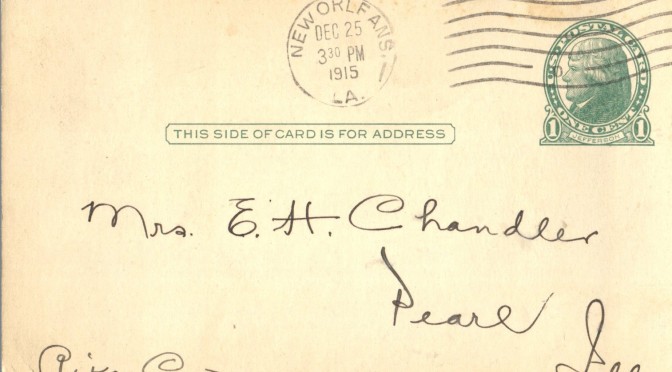 NEW ORLEANS,
DEC 25
3 30 PM
1915
LA.
U.S. POSTAL CARD
1 ONE CENT 1
JEFFERSON
THIS SIDE OF CARD IS FOR ADDRESS
Mrs. E. H. Chandler
Pearl